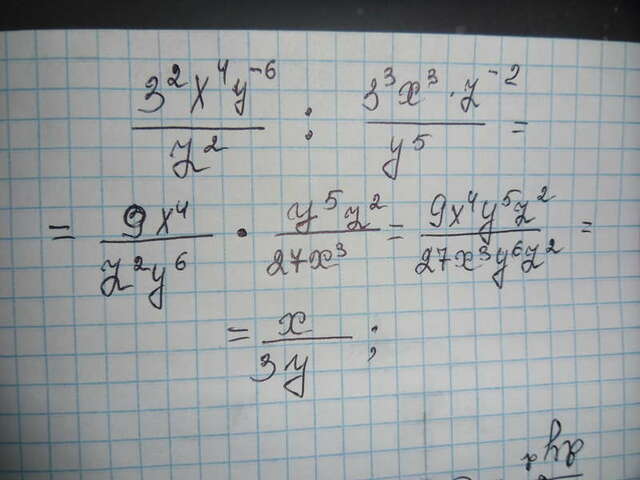 3²x⁴y⁻⁶ / z² : 3³x³·z⁻² / y⁵ =
= 9x⁴ / z²y⁶ · y⁵z² / 27x³ = 9x⁴y⁵z² / 27x³y⁶z² =
= x / 3y ;